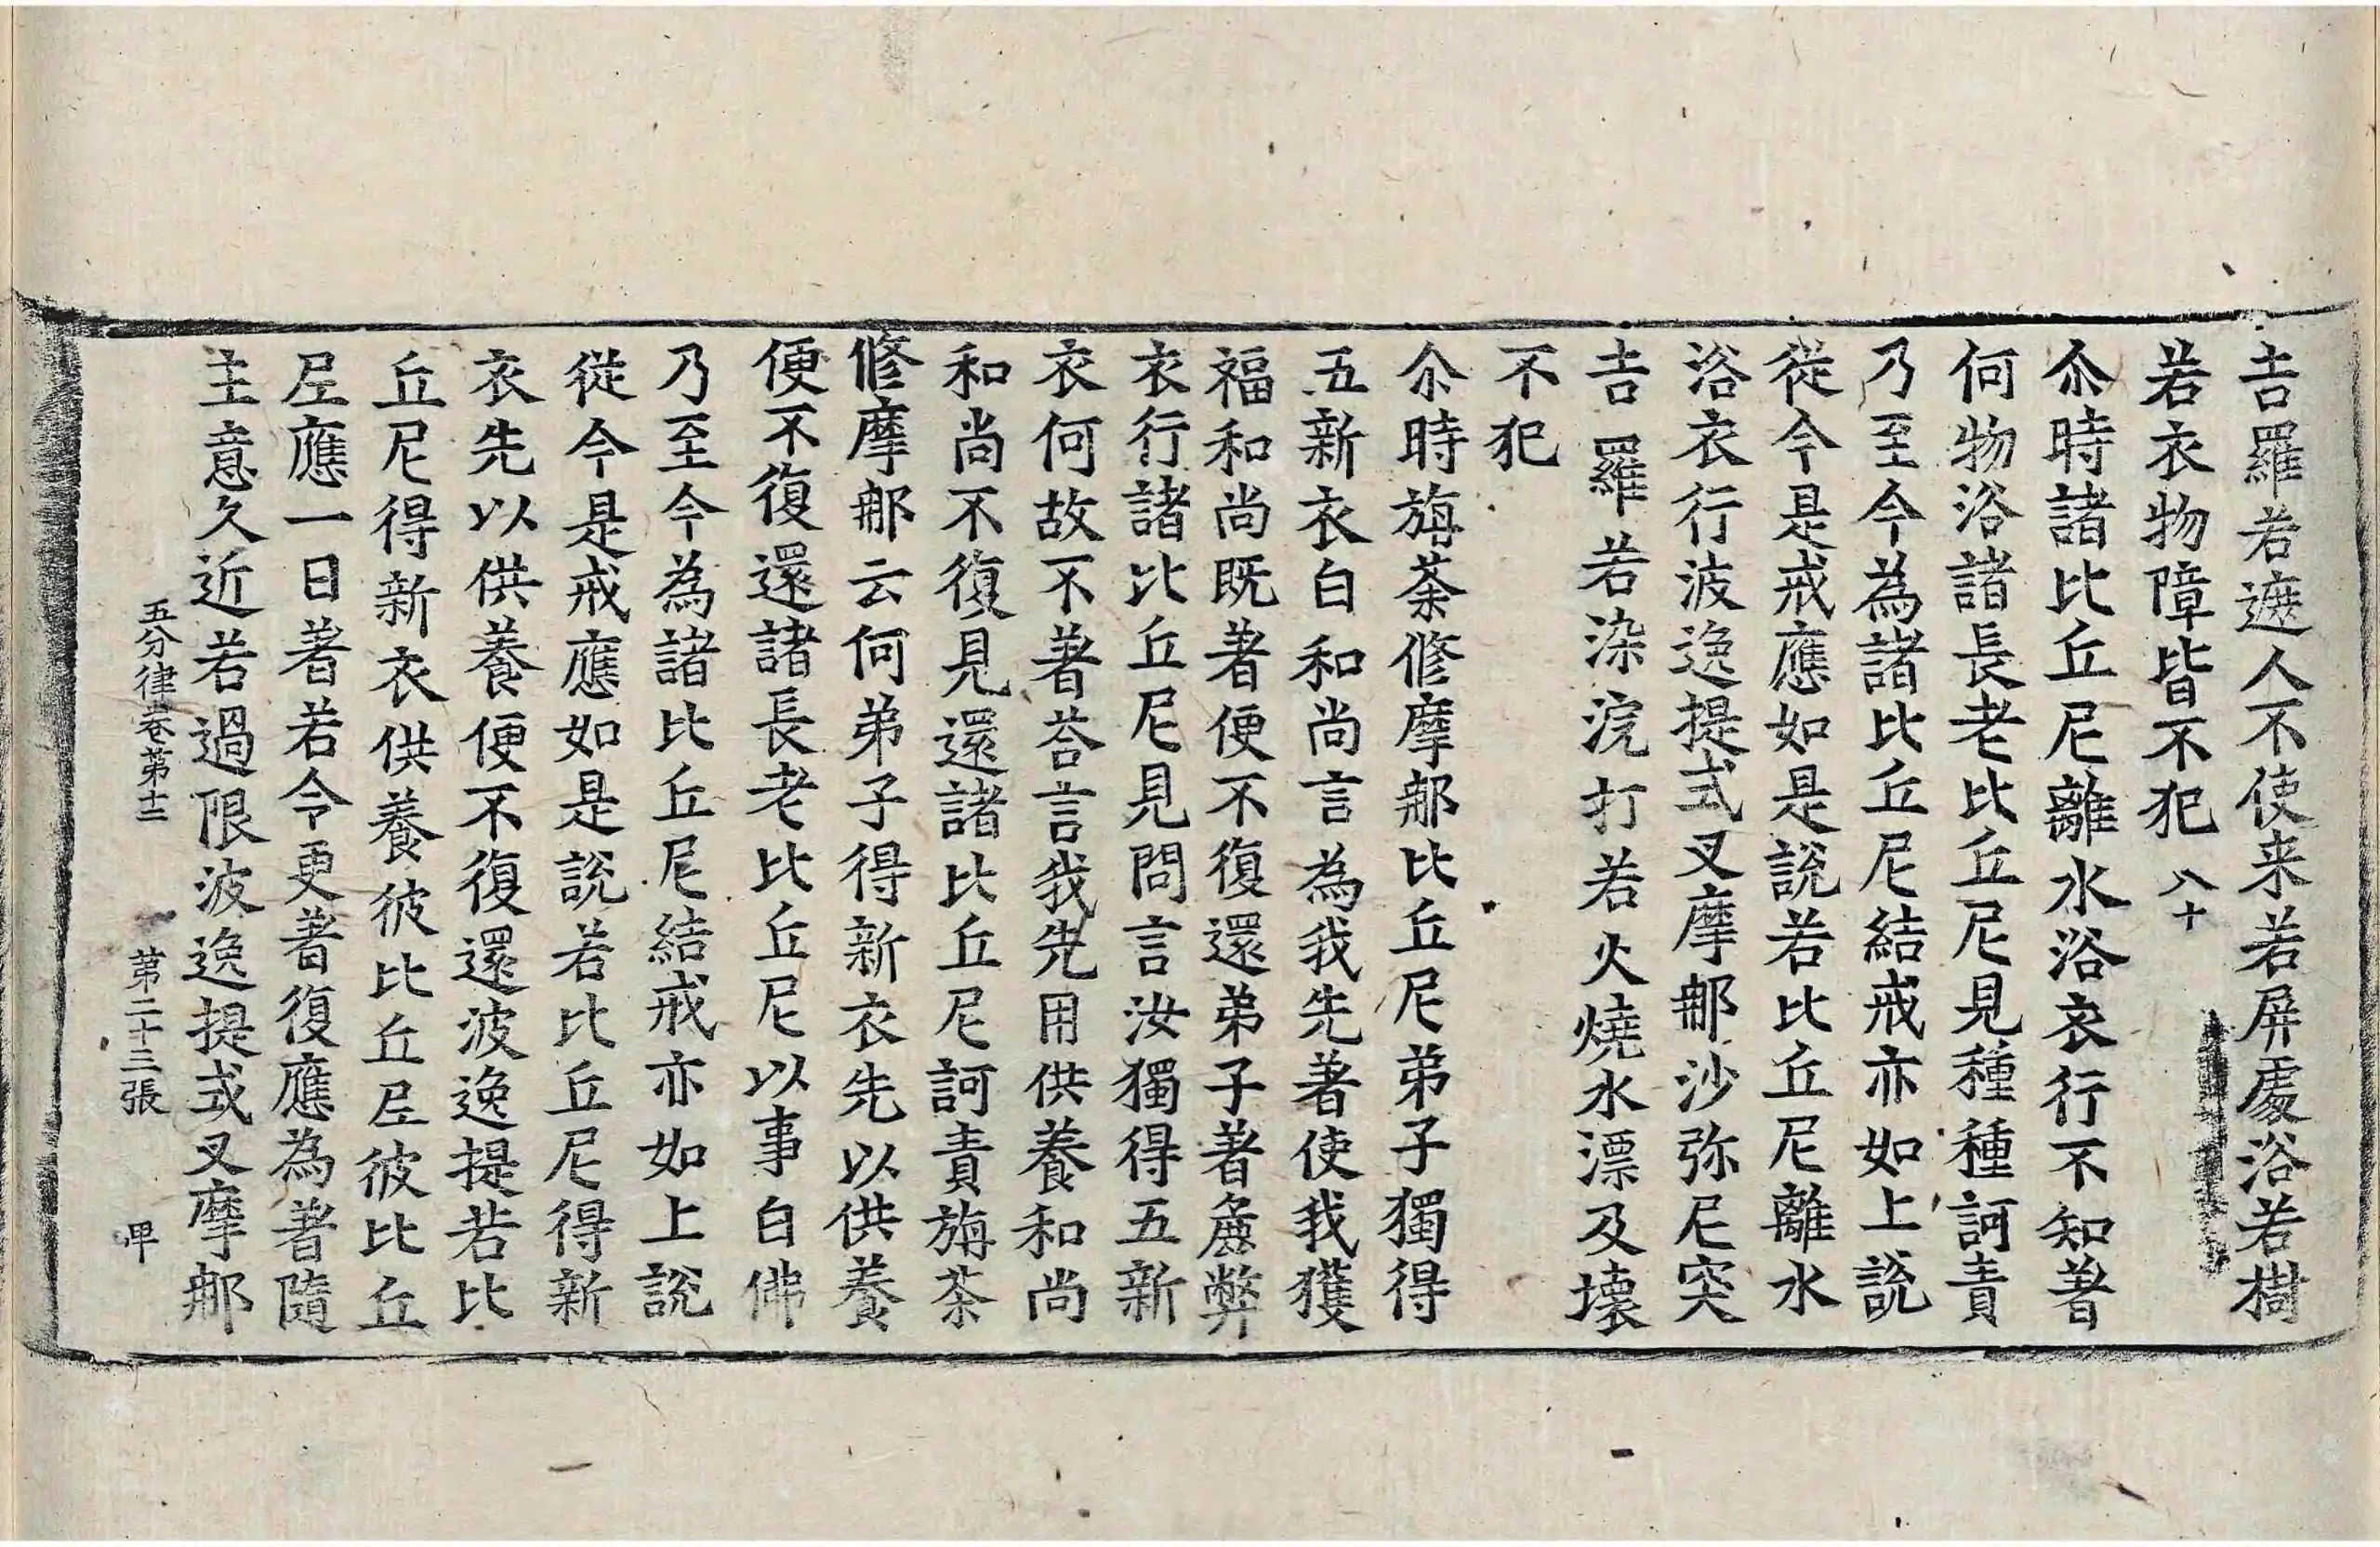 吉羅若遮人不使来若屏處浴若樹
若衣物障皆不犯 八十
尒時諸比丘尼離水浴衣行不知著
何物浴諸長老比丘尼見種種訶責
乃至今為諸比丘尼結戒亦如上說
從今是戒應如是說若比丘尼離水
浴衣行波逸提式叉摩那沙弥尼突
吉羅若染浣打若火燒水漂及壞
不犯
尒時旃荼修摩那比丘尼弟子獨得
五新衣白和尚言為我先著使我獲
福和尚既著便不復還弟子著麁弊
衣行諸比丘尼見問言汝獨得五新
衣何故不著荅言我先用供養和尚
和尚不復見還諸比丘尼訶責旃荼
修摩那云何弟子得新衣先以供養
便不復還諸長老比丘尼以事白佛
乃至今為諸比丘尼結戒亦如上說
從今是戒應如是說若比丘尼得新
衣先以供養便不復還波逸提若比
丘尼得新衣供養彼比丘尼彼比丘
尼應一日著若令更著復應為著隨
主意久近若過限波逸提式叉摩那
五分律卷第十三 第二十三張 甲